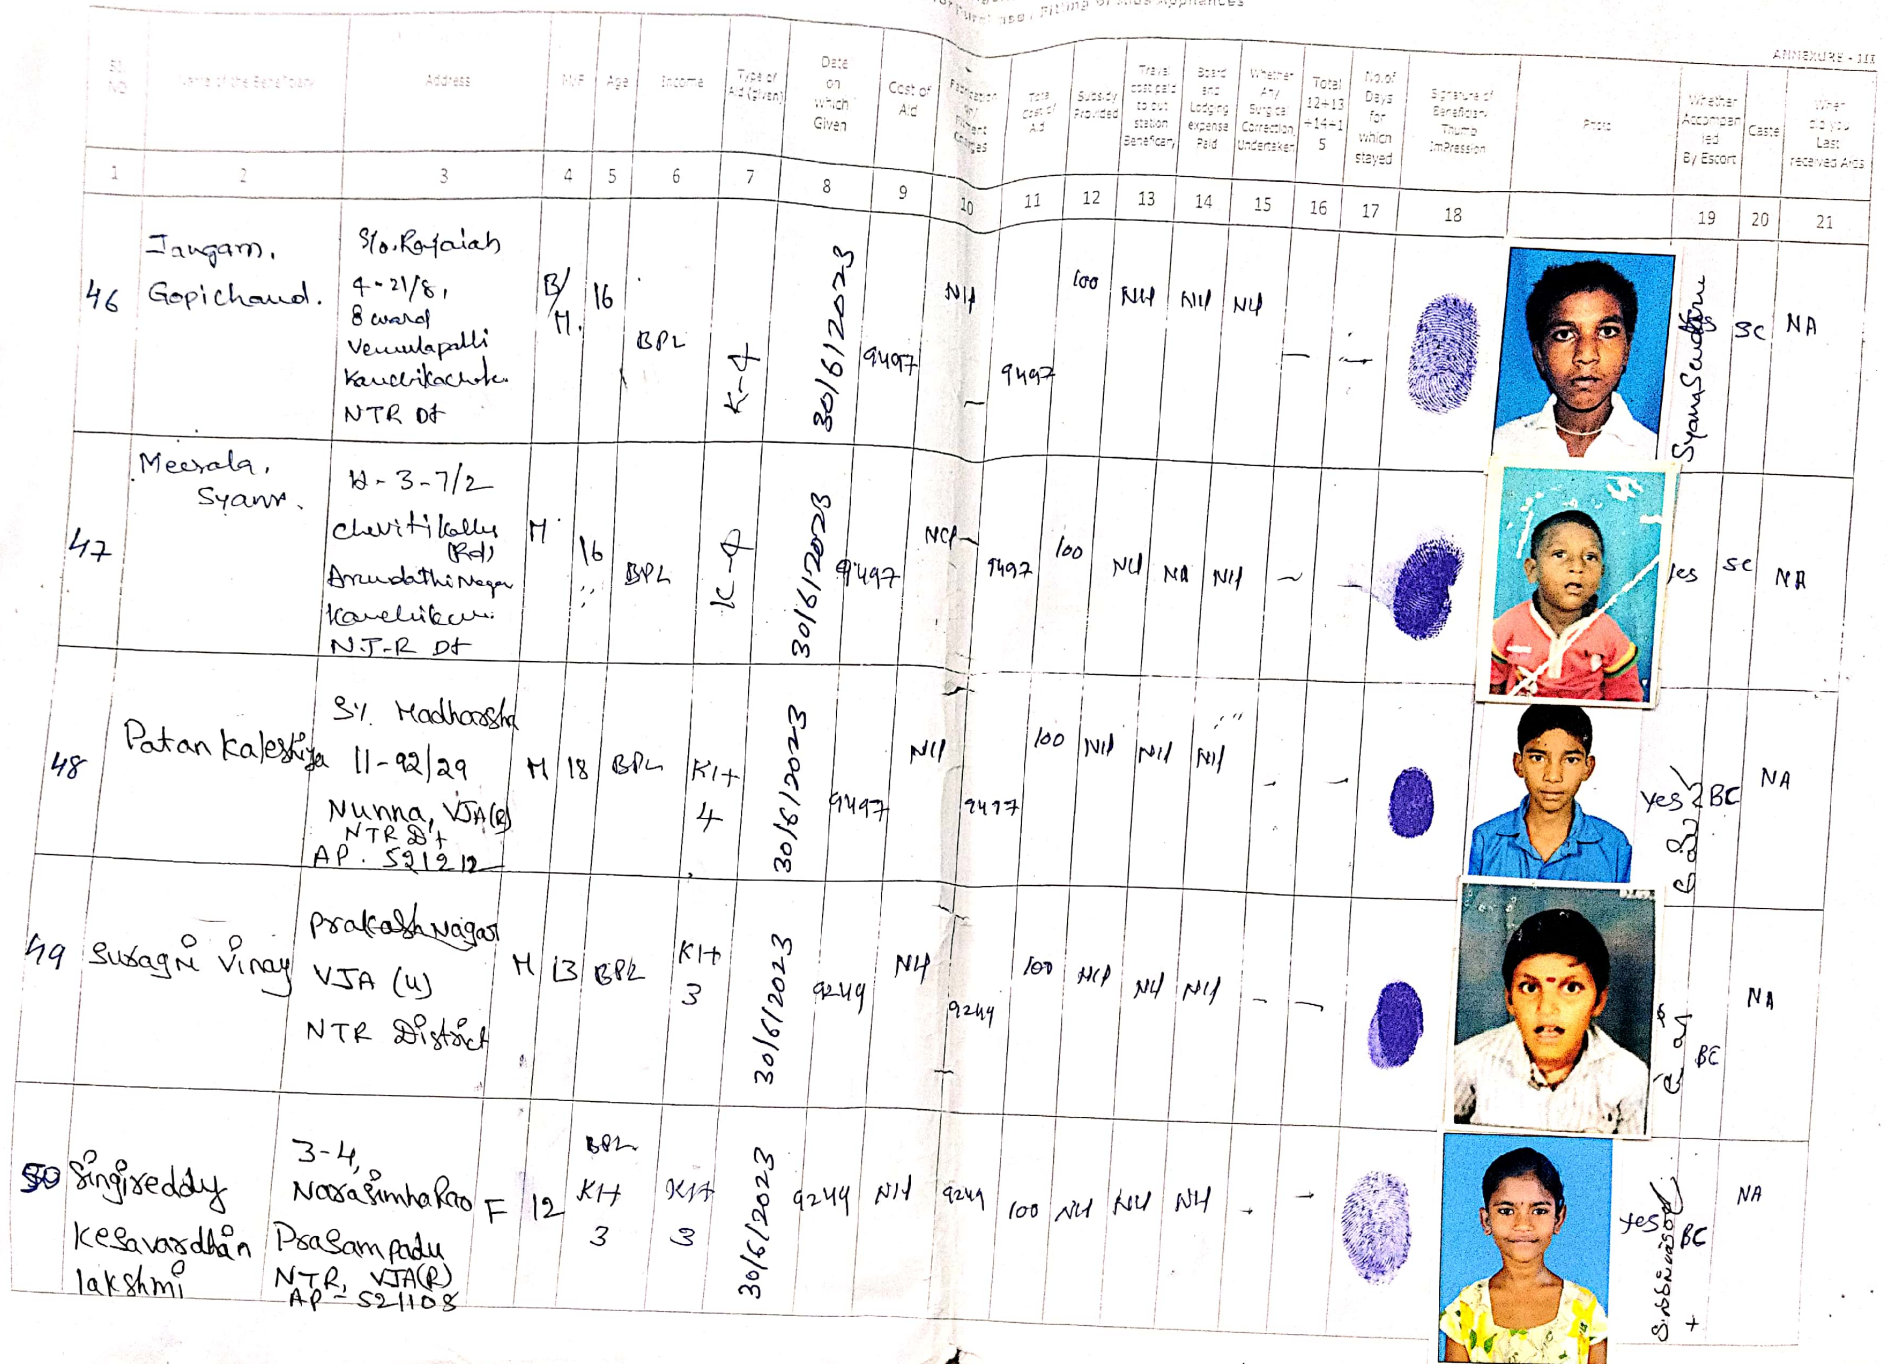 Fitting of Aids Appliances
ANNEXURE - III
Sl. NO
Name of the Beneficiary
Address
M/F
Age
Income
Type of Aid (given)
Date on which Given
Cost of Aid
Fabrication Fitment Charges
Total Cost of Aid
Subsidy Provided
Travel cost paid to out station Beneficiary
Board and Lodging expense Paid
Whether Any Surgical Correction Undertaken
Total 12+13+14+15
No.of Days for which stayed
Signature of Beneficiary Thumb Impression
Photo
Whether Accompanied By Escort
Caste
When did you Last received Aids
1 2 3 4 5 6 7 8 9 10 11 12 13 14 15 16 17 18 19 20 21
46
Jangam.
Gopichand.
S/o. Rajaiah
4-21/8,
8 ward
Vemulapalli
NTR Dt
B/M.
16
BPL
K-4
30/6/2023
9497
Nil
9497
100
Nil
Nil
Nil
SC
NA
47
Meesala,
Syam.
H-3-7/2
(Rd)
N.T.R Dt
M
16
BPL
K-4
30/6/2023
9497
Nil
9497
100
Nil
NA
Nil
Yes
SC
NA
48
Patan
11-92/29
Nunna, VJA(R)
NTR Dt
AP. 521212
M
18
BPL
Kit
4
30/6/2023
9497
Nil
9497
100
Nil
Nil
Nil
yes
BC
NA
49
Suragni Vinay
Prakash Nagar
VJA (U)
NTR District
M
13
BPL
Kit
3
30/6/2023
9249
Nil
9249
100
Nil
Nil
Nil
BC
NA
50
Singireddy
Kesavardhan
lakshmi
3-4,
Narasimha Rao
Prasampadu
NTR, VJA(R)
AP - 521108
F
12
BPL
Kit
3
Kit
3
30/6/2023
9249
Nil
9249
100
Nil
Nil
Nil
yes
BC
NA